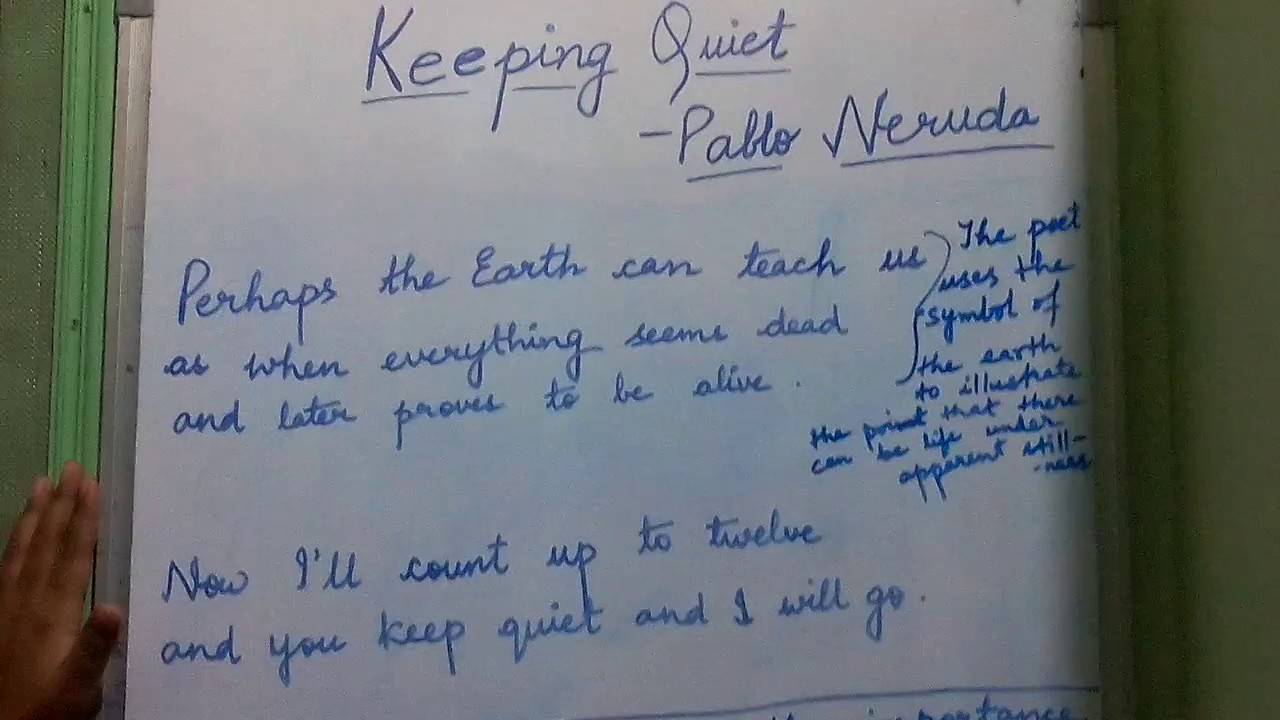 Keeping Quiet
- Pablo Neruda
Perhaps the Earth can teach us
as when everything seems dead
and later proves to be alive.
The poet
uses the
symbol of
the earth
to illustrate
the point that there
can be life under
apparent still-
-ness
Now I'll count up to twelve
and you keep quiet and I will go.
importance